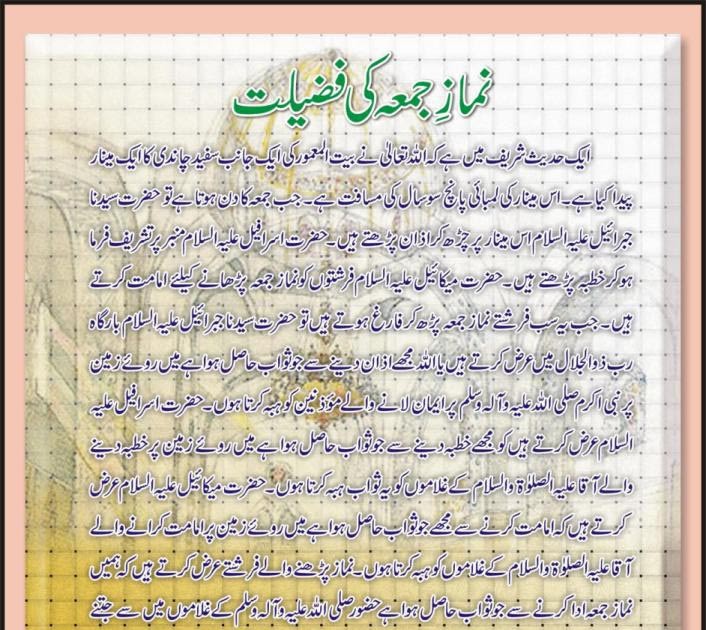 نمازِ جمعہ کی فضیلت
ایک حدیث شریف میں ہے کہ اللہ تعالیٰ نے بیت المعمور کی ایک جانب سفید چاندی کا ایک مینار
پیدا کیا ہے۔ اس مینار کی لمبائی پانچ سو سال کی مسافت ہے۔ جب جمعہ کا دن ہوتا ہے تو حضرت سیدنا
جبرائیل علیہ السلام اس مینار پر چڑھ کر اذان پڑھتے ہیں۔ حضرت اسرافیل علیہ السلام منبر پر تشریف فرما
ہو کر خطبہ پڑھتے ہیں۔ حضرت میکائیل علیہ السلام فرشتوں کو نماز جمعہ پڑھانے کیلئے امامت کرتے
ہیں۔ جب یہ سب فرشتے نماز جمعہ پڑھ کر فارغ ہوتے ہیں تو حضرت سیدنا جبرائیل علیہ السلام بارگاہ
رب ذوالجلال میں عرض کرتے ہیں یا اللہ مجھے اذان دینے سے جو ثواب حاصل ہوا ہے میں روئے زمین
پر نبی اکرم صلی اللہ علیہ وآلہ وسلم پر ایمان لانے والے مؤذنین کو ہبہ کرتا ہوں۔ حضرت اسرافیل علیہ
السلام عرض کرتے ہیں کو مجھے خطبہ دینے سے جو ثواب حاصل ہوا ہے میں روئے زمین پر خطبہ دینے
والے آقا علیہ الصلوٰۃ والسلام کے غلاموں کو یہ ثواب ہبہ کرتا ہوں۔ حضرت میکائیل علیہ السلام عرض
کرتے ہیں کہ امامت کرنے سے مجھے جو ثواب حاصل ہوا ہے میں روئے زمین پر امامت کرانے والے
آقا علیہ الصلوٰۃ والسلام کے غلاموں کو ہبہ کرتا ہوں۔ نماز پڑھنے والے فرشتے عرض کرتے ہیں کہ ہمیں
نماز جمعہ ادا کرنے سے جو ثواب حاصل ہوا ہے حضور صلی اللہ علیہ وآلہ وسلم کے غلاموں میں سے جتنے